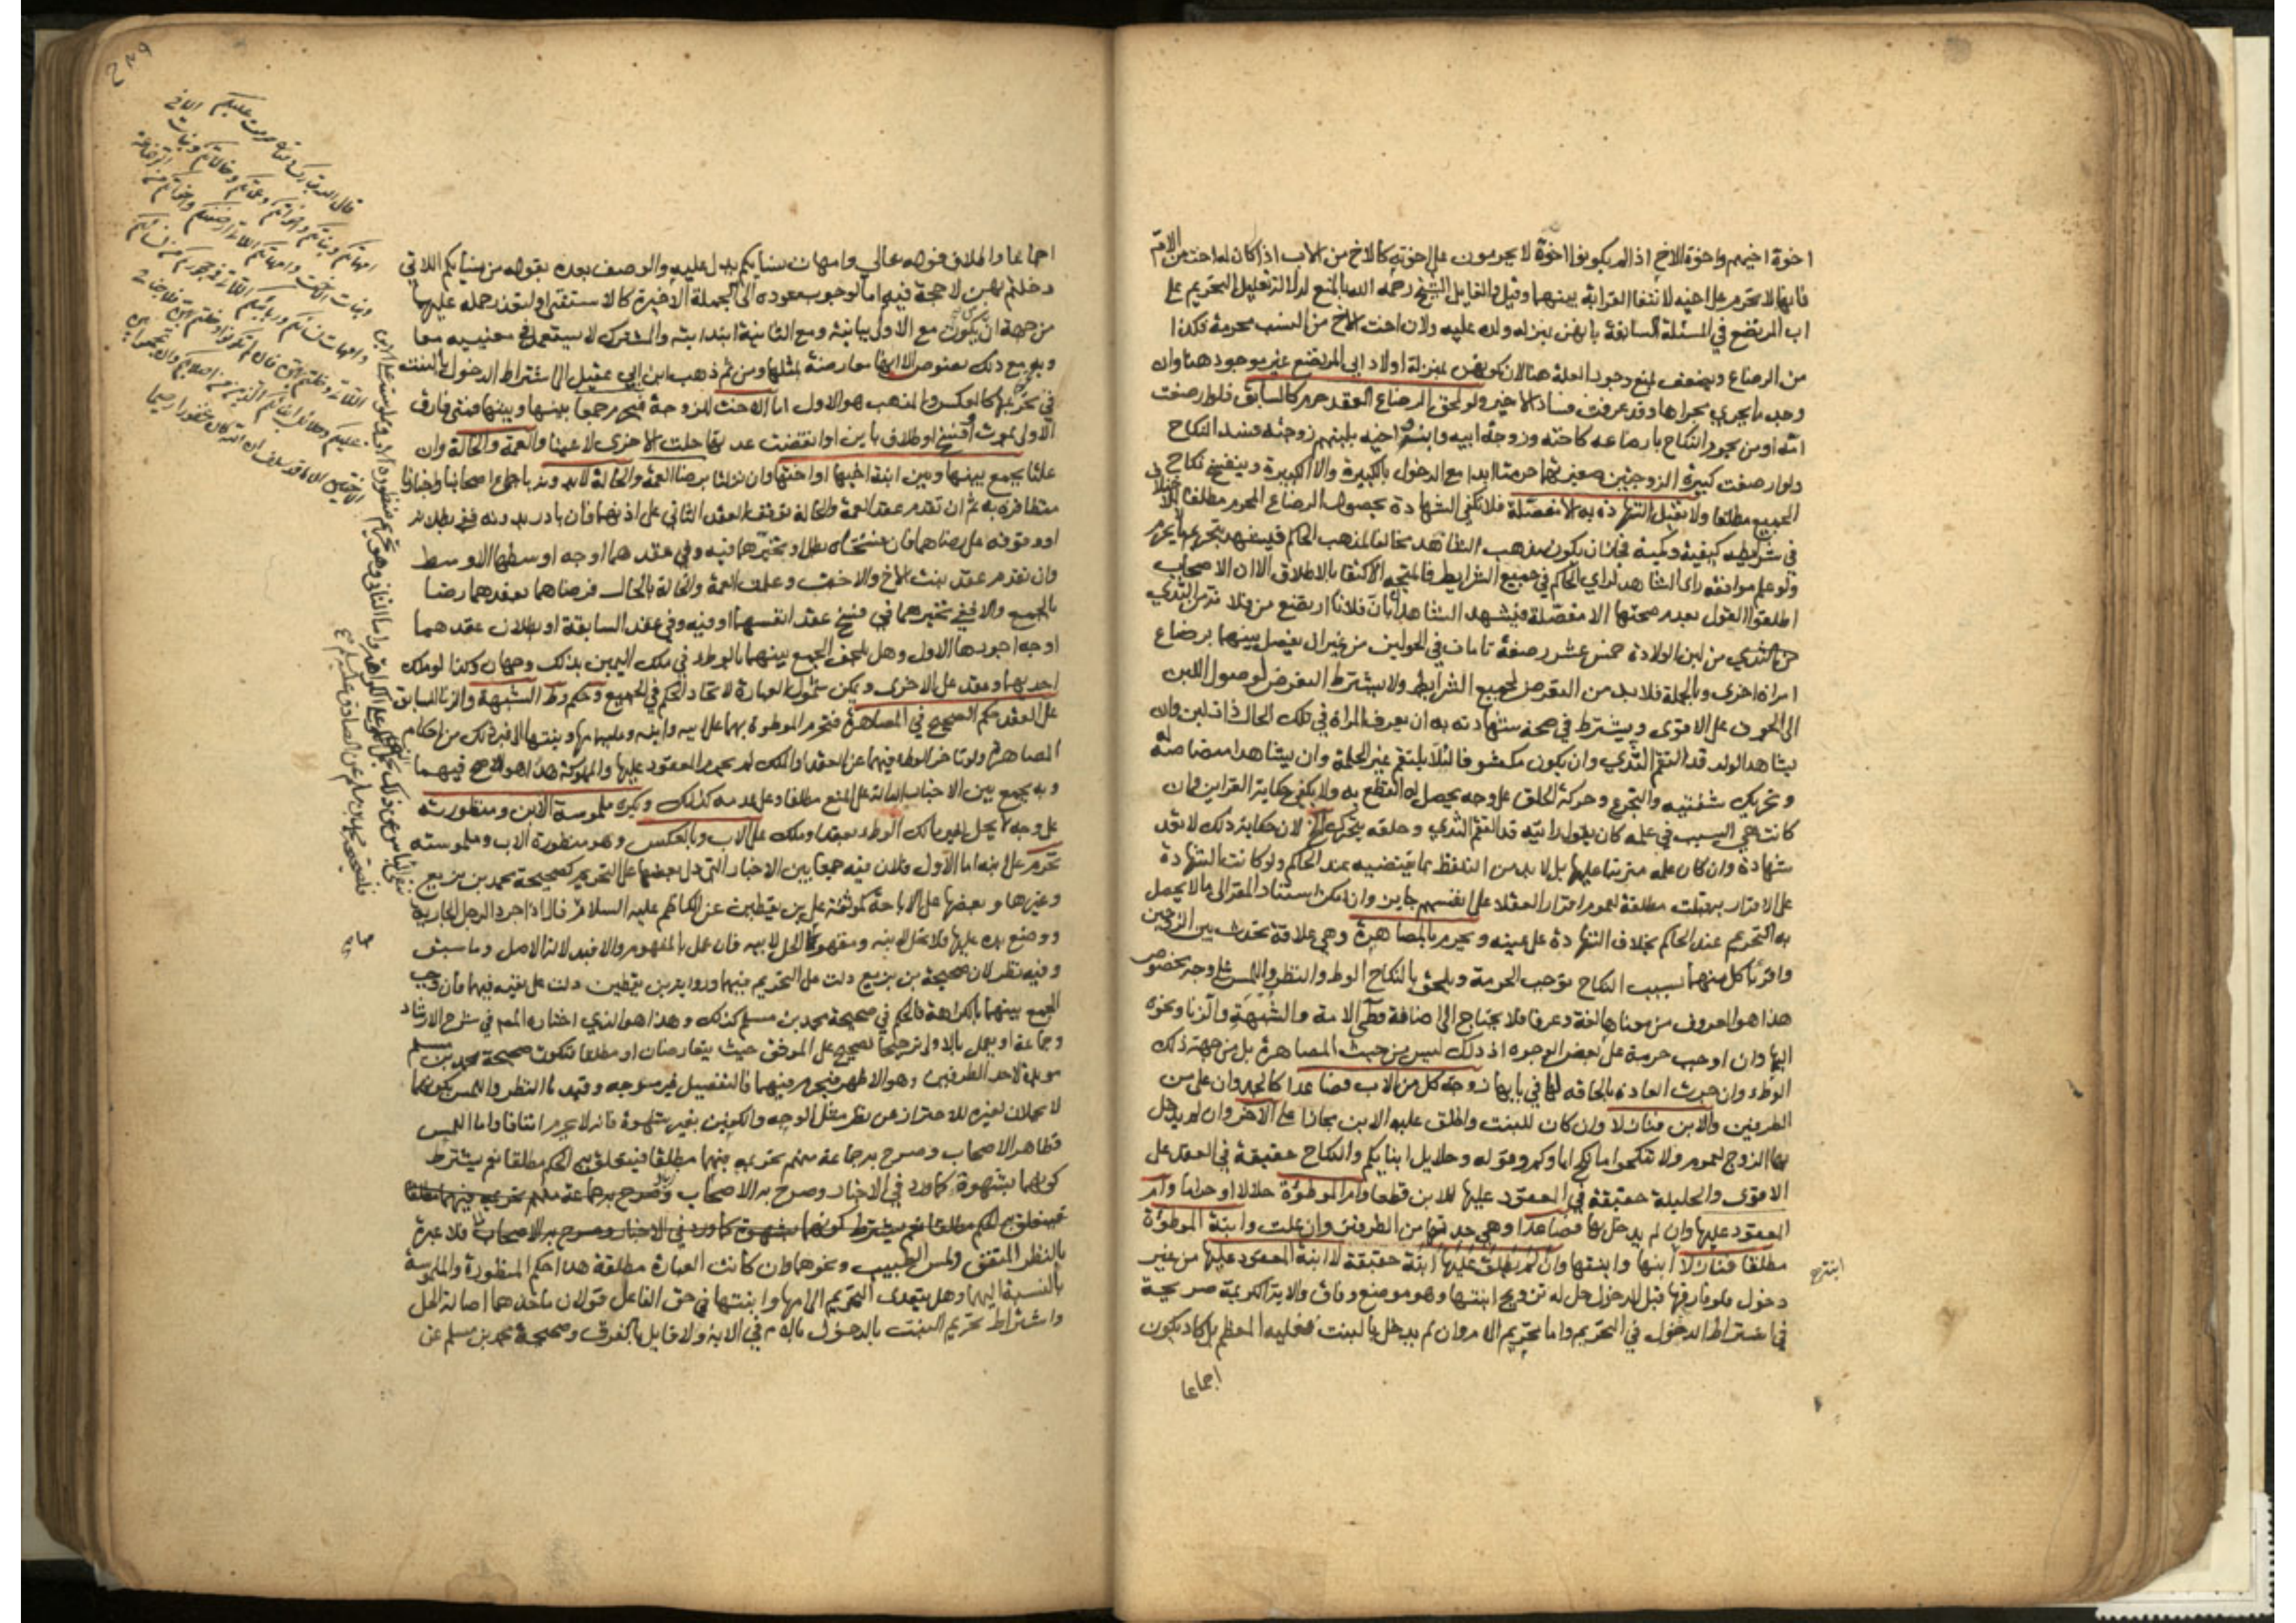 اخوة اخيهم واخوة الاخ اذا لم يكونوا اخوة لا يحرمون على اخوته كالاخ من الاب اذا كان له اخت من الام
فانها لا تحرم على اخيه لانتفاء القرابة بينهما وقيل والقايل الشيخ رحمه الله بالمنع لدلالة تعليل التحريم على
اب المرتضع في المسئلة السابقة بانهن بمنزلة ولده عليه ولان اخت الاخ من النسب محرمة فكذا
من الرضاع ويضعف بمنع وجود العلة هنا لان كونهن بمنزلة اولاد ابي المرتضع غير موجود هنا وان
وجد ما يجري مجراها وقد عرفت فساد الاخير ولو لحق الرضاع العقد حرم كالسابق فلو ارضعت
امه او من يحرم النكاح بارضاعه كاخته وزوجة ابيه وابنه واخيه بلبنهم زوجته فسد النكاح
ولو ارضعت كبيرة الزوجتين صغيرتهما حرمتا ابدا مع الدخول بالكبيرة والا الكبيرة وينفسخ نكاح
الجميع مطلقا ولا تقبل الشهادة به الا مفصلة فلا تكفي الشهادة بحصول الرضاع المحرم مطلقا للاختلاف
في شرايطه كيفية وكمية فجاز ان يكون مذهب الشاهد مخالفا لمذهب الحاكم فيشهد بتحريم ما لا يحرمه
ولو علم موافقة راي الشاهد لراي الحاكم في جميع الشرايط فالمتجه الاكتفا بالاطلاق الا ان الاصحاب
اطلقوا القول بعدم صحتها الا مفصلة فيشهد الشاهدان بان فلانا ارتضع من فلانة من الثدي
من الثدي من لبن الولادة خمس عشر رضعة تامات في الحولين من غير ان يفصل بينهما برضاع
امراة اخرى وبالجملة فلا بد من التعرض لجميع الشرايط ولا يشترط التعرض لوصول اللبن
الى الجوف على الاقوى ويشترط في صحة شهادته به ان يعرف المراة في تلك الحال ذات لبن وان
يشاهد الولد قد التقم الثدي وان يكون مكشوفا لئلا يلتقم غير الحلمة وان يشاهد امتصاصه له
وتحريك شفتيه والتجرع وحركة الحلق على وجه يحصل له القطع به ولا يكفي حكاية القراين وان
كانت هي السبب في علمه كان يقول رايته قد التقم الثدي وحلقه يتحرك الخ لان حكاية ذلك لا تعد
شهادة وان كان علمه مترتبا عليها بل لا بد من التلفظ بما يقتضيه عند الحاكم ولو كانت الشهادة
على الاقرار به قبلت مطلقة لعموم اقرار العقلا على انفسهم جايز وان امكن استناد المقر الى ما لا يحصل
به التحريم عند الحاكم بخلاف الشهادة على عينه ويحرم بالمصاهرة وهي علاقة تحدث بين الزوجين
واقرباء كل منهما بسبب النكاح توجب الحرمة ويلحق بالنكاح الوطء والنظر واللمس على وجه مخصوص
هذا هو المعروف من معناها لغة وعرفا فلا يحتاج الى اضافة وطئ الامة والشبهة والزنا ونحوه
اليها وان اوجب حرمة على بعض الوجوه اذ ذلك ليس من حيث المصاهرة بل من جهة ذلك
الوطء وان جرت العادة بالحاقه لها في بابها زوجة كل من الاب فصاعدا كالجد وان علا من
الطرفين والابن فنازلا وان كان للبنت واطلق عليه الابن مجازا على الاخر وان لم يدخل
بها الزوج لعموم ولا تنكحوا ما نكح اباوكم وقوله وحلايل ابنايكم والنكاح حقيقة في العقد على
الاقوى والحليلة حقيقة في المعقود عليها للابن قطعا وام الموطوءة حلالا او حراما وام
المعقود عليها وان لم يدخل بها فصاعدا وهي جدتها من الطرفين وان علت وابنة الموطوءة
مطلقا فنازلا ابنها وابنتها وان لم يطلق عليها ابنة حقيقة لا ابنة المعقود عليها من غير
دخول فلو فارقها قبل الدخول حل له تزويج ابنتها وهو موضع وفاق والاية الكريمة صريحة
في اشتراط الدخول في التحريم واما تحريم الام وان لم يدخل بالبنت فعليه المعظم بل كاد يكون
اجماعا
اجماعا واطلاق قوله تعالى وامهات نسايكم يدل عليه والوصف بعده بقوله من نسايكم اللاتي
دخلتم بهن لا حجة فيه اما لوجوب عوده الى الجملة الاخيرة كالاستثنا او لتعذر حمله عليهما
من جهة ان تكون من مع الاولى بيانية ومع الثانية ابتدايية والمشترك لا يستعمل في معنييه معا
وبه مع ذلك نصوص الا انها معارضة بمثلها ومن ثم ذهب ابن ابي عقيل الى اشتراط الدخول بالبنت
في تحريمها كالعكس والمذهب هو الاول اما الاخت للزوجة فتحرم جمعا بينها وبينها فمتى فارق
الاولى بموت او فسخ او طلاق باين او انقضت عدتها حلت الاخرى لا عينا والعمة والخالة وان
علتا يجمع بينها وبين ابنة اخيها او اختها وان نزلتا برضا العمة والخالة لا بدونه باجماع اصحابنا واخبارنا
متظافرة به ثم ان تقدم عقد العمة والخالة توقف العقد الثاني على اذنهما فان بادر بدونه ففي بطلانه
او وقوفه على رضاهما فان فسختاه بطل او تخيرهما فيه وفي عقدهما اوجه اوسطها الاوسط
وان تقدم عقد بنت الاخ والاخت وعلمت العمة والخالة بالحال فرضاهما بعقدهما رضا
بالجمع والا ففي تخيرهما في فسخ عقد انفسهما او فيه وفي عقد السابقة او بطلان عقدهما
اوجه اجودها الاول وهل يلحق الجمع بينهما بالوطء في ملك اليمين بذلك وجهان وكذا لو ملك
احديهما وعقد على الاخرى ويمكن شمول العبارة لاتحاد الحكم في الجميع وحكم وطء الشبهة والزنا السابق
على العقد حكم الصحيح في المصاهرة فتحرم الموطوة بهما على ابيه وابنه وعليه امها وبنتها الى غير ذلك من احكام
المصاهرة ولو تاخر الوطء فيهما عن العقد او الملك لم يحرم المعقود عليها والمملوكة هذا هو الاصح فيهما
وبه يجمع بين الاخبار الدالة على المنع مطلقا وعلى عدمه كذلك ويكره ملموسة الابن ومنظورته
على وجه لا يحل لغير مالك الوطء بعقد او ملك على الاب وبالعكس وهو منظورة الاب وملموسته
تحرم على ابنه اما الاول فلان فيه جمعا بين الاخبار التي دل بعضها على التحريم كصحيحة محمد بن بزيع
وغيرها وبعضها على الاباحة كموثقة علي بن يقطين عن الكاظم عليه السلام قال اذا جرد الرجل الجارية
ووضع يده عليها فلا تحل لابنه ومفهومه الحل لابيه فان عمل بالمفهوم والا فبدلالة الاصل وما سبق
وفيه نظر لان صحيحة بن بزيع دلت على التحريم فيهما ورواية بن يقطين دلت على نفيه فيهما فان وجب
الجمع بينهما بالكراهة فالحكم في صحيحة محمد بن مسلم كذلك وهذا هو الذي اختاره المص في شرح الارشاد
وجماعة او يعمل بالاولى ترجيحا للصحيح على الموثق حيث يتعارضان او مطلقا فتكون صحيحة محمد بن مسلم
مويدة لاحد الطرفين وهو الاظهر فيحرم فيهما فالتفصيل غير متوجه وقيد بالنظر واللمس بكونهما
لا يحلان لغيره للاحتراز عن نظر مثل الوجه والكفين بغير شهوة فانه لا يحرم اتفاقا واما اللمس
فظاهر الاصحاب وصرح به جماعة منهم تحريمه فيهما مطلقا فيتعلق به الحكم مطلقا نعم يشترط
كونهما بشهوة كما ورد في الاخبار وصرح به الاصحاب وصرح به جماعة منهم تحريمه فيهما مطلقا
فيتعلق به الحكم مطلقا نعم يشترط كونهما بشهوة كما ورد في الاخبار وصرح به الاصحاب فلا عبرة
بالنظر المتفق ولمس الطبيب ونحوهما وان كانت العبارة مطلقة هذا حكم المنظورة والملموسة
بالنسبة اليهما وهل يتعدى التحريم الى امها وابنتها في حق الفاعل قولان ماخذهما اصالة الحل
واشتراط تحريم البنت بالدخول بالام في الاية ولا قايل بالفرق وصحيحة محمد بن مسلم عن